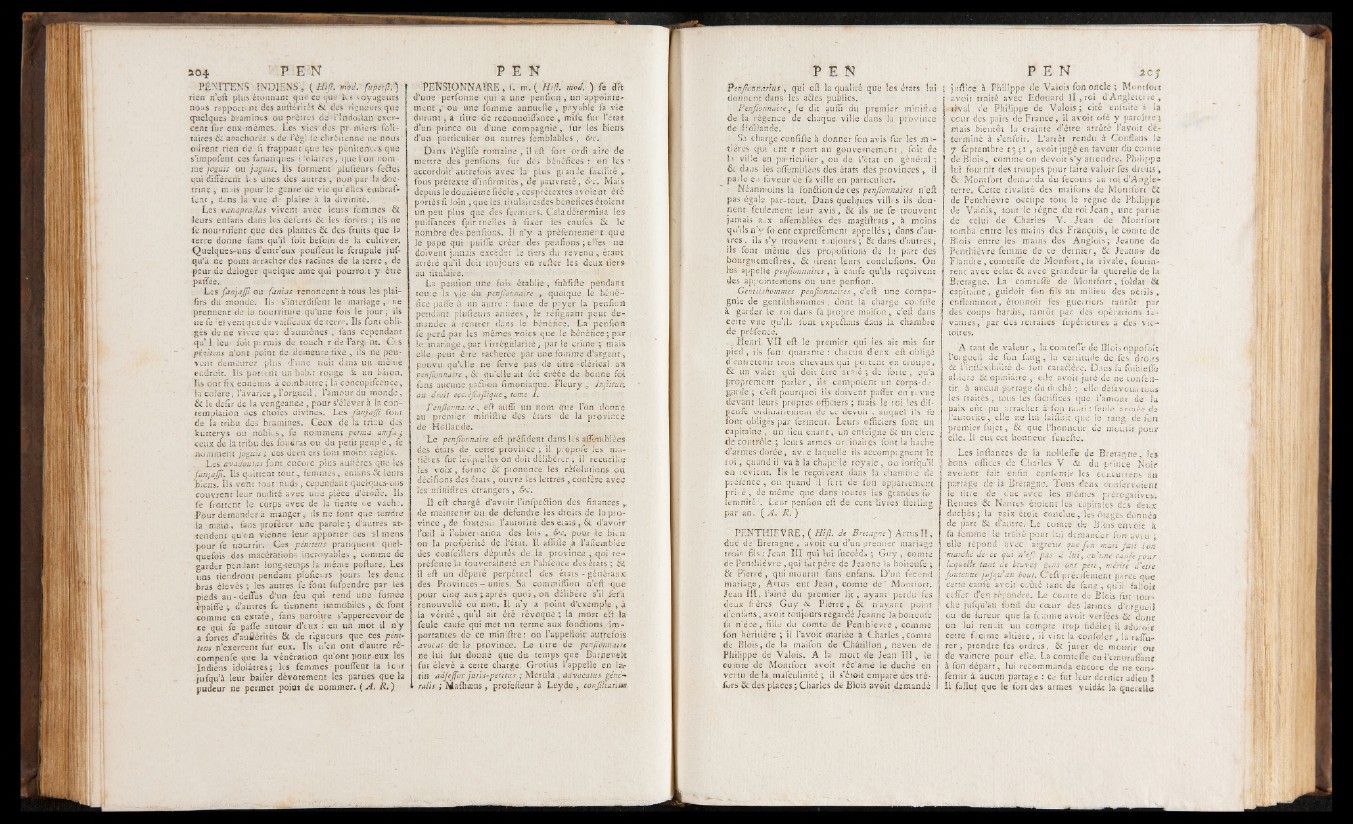 204 PEN PEN
PÉNITENS INDIENS, ( Hiſt. mod. ſuperſt. )
rien n'eſt plus étonnant que ce que les voyageurs
nous rapportent des auſtérités & des rigueurs que
quelques bramines ou prêtres de l'Indoſtan exer-
cent ſur eux-mêmes. Les vies des premiers ſoli-
taires & anachorètes de l'égliſe chrétienne ne nous
offrent rien de ſi frappant que les pénitences que
s'impoſent ces fanatiques idolâtres, que l'on nom-
me joguis ou jogees. Ils forment pluſieurs ſectes
qui diffèrent les unes des autres, non par la doc-
trine, mais pour le genre de vie qu'elles embraſ-
ſent, dans la vue de plaire à la divinité.
Les vanapraſtas vivent avec leurs femmes &
leurs enfans dans les deſerts & les forêts ; ils ne
ſe nourriſſent que des plantes & des fruits que la
terre donne ſans qu'il ſoit beſoin de la cultiver.
Quelques-uns d'entr'eux pouſſent le ſcrupule juſ-
qu'à ne point arracher des racines de la terre, de
peur de déloger quelque ame qui pourroit y être
paſſée.
Les ſanjaſſi ou ſanias renoncent à tous les plai-
ſirs du monde. Ils s'interdiſent le mariage, ne
prennent de la nourriture qu'une fois le jour ; ils
ne ſe ſervent que de vaiſſeaux de terre. Ils ſont obli-
gés de ne vivre que d'aumônes, ſans cependant
qu'il leur ſoit permis de toucher de l'argent. Ces
pénitens n'ont point de demeure fixe, ils ne peu-
vent demeurer plus d'une nuit dans un même
endroit. Ils portent un habit rouge & un bâton.
Ils ont ſix ennemis à combattre ; la concupiſcence,
la colère, l'avarice, l'orgueil, l'amour du monde,
& le deſir de la vengeance, pour s'élever à la con-
templation des choſes divines. Les ſanjaſſi ſont
de la tribu des bramines. Ceux de la tribu des
kutterys ou nobles, ſe nomment
ceux de la tribu des ſoudras ou du petit peuple, ſe
nomment joguis ; ces derniers ſont moins réglés.
Les avadoutas ſont encore plus auſtères que les
ſanjaſſi. Ils quittent tout, femmes, enfans & leurs
biens. Ils vont tout nuds, cependant quelques-uns
couvrent leur nudité avec une pièce d'étoffe. Ils
ſe frottent le corps avec de la fiente de vache.
Pour demander à manger, ils ne font que tendre
la main, ſans proférer une parole ; d'autres at-
tendent qu'on vienne leur apporter des alimens
pour ſe nourrir. Ces pénitens pratiquent quel-
quefois des macérations incroyables, comme de
garder pendant long-temps la même poſture. Les
uns tiendront pendant pluſieurs jours les deux
bras élevés ; les autres ſe font ſuſpendre par les
pieds au-deſſus d'un feu qui rend une fumée
épaiſſe ; d'autres ſe tiennent immobiles, & ſont
comme en extaſe, ſans paroître s'appercevoir de
ce qui ſe paſſe autour d'eux : en un mot il n'y
a ſortes d'auſtérités & de rigueurs que ces péni-
tens n'exercent ſur eux. Ils n'en ont d'autre ré-
compenſe que la vénération qu'ont pour eux les
Indiens idolâtres ; les femmes pouſſent la leur
juſqu'à leur baiſer dévotement les parties que la
pudeur ne permet point de nommer. ( A. R. )
PENSIONNAIRE, ſ. m. ( Hiſt. mod. ) ſe dit
d'une perſonne qui a une penſion, un appointe-
ment, ou une ſomme annuelle, payable ſa vie
durant, à titre de reconnoiſſance, miſe ſur l'état
d'un prince ou d'une compagnie, ſur les biens
d'un particulier ou autres ſemblables, &c.
Dans l'égliſe romaine, il eſt fort ordinaire de
mettre des penſions ſur des bénéfices : on les
accordoit autrefois avec la plus grande facilité,
ſous prétexte d'infirmités, de pauvreté, &c. Mais
depuis le douzième ſiècle, ces prétextes avoient été
portés ſi loin, que les titulaires des bénéfices étoient
un peu plus que des fermiers. Cela détermina les
puiſſances ſpirituelles à fixer les cauſes & le
nombre des penſions. Il n'y a préſentement que
le pape qui puiſſe créer des penſions ; elles ne
doivent jamais excéder le tiers du revenu, étant
arrêté qu'il doit toujours en reſter les deux tiers
au titulaire.
La penſion une fois établie, ſubſiſte pendant
toute la vie du penſionnaire, quoique le béné-
fice paſſe à un autre : faute de payer la penſion
pendant pluſieurs années, le réſignant peut de-
mander à rentrer dans le bénéfice. La penſion
ſe perd par les mêmes voies que le bénéfice ; par
le mariage, par l'irrégularité, par le crime ; mais
elle peut être rachetée par une ſomme d'argent,
pouvu qu'elle ne ſerve pas de titre clérical au
penſionnaire, & qu'elle ait été créée de bonne foi
ſans aucune paction ſimoniaque. Fleury, Inſtitut.
au droit eccléſiaſtique, tome I.
Penſionnaire, eſt auſſi un nom que l'on donne
au premier miniſtre des états de la province
de Hollande.
Le penſionnaire eſt préſident dans les aſſemblées
des états de cette province ; il propoſe les ma-
tières ſur leſquelles on doit délibérer, il recueille
les voix, forme & prononce les réſolutions ou
déciſions des états, ouvre les lettres, confère avec
les miniſtres étrangers, &c.
Il eſt chargé d'avoir l'inſpection des finances,
de maintenir ou de défendre les droits de la pro-
vince, de ſoutenir l'autorité des états, & d'avoir
l'œil à l'obſervation des lois, &c. pour le bien
ou la proſpérité de l'état. Il aſſiſte à l'aſſemblée
des conſeillers députés de la province, qui re-
préſente la ſouveraineté en l'abſence des états ; &
il eſt un député perpétuel des états-généraux
des Provinces-unies. Sa commiſſion n'eſt que
pour cinq ans ; après quoi, on délibère s'il ſera
renouvellé ou non. Il n'y a point d'exemple, à
la vérité, qu'il ait été révoqué ; la mort eſt la
ſeule cauſe qui met un terme aux fonctions im-
portantes de ce miniſtre : on l'appelloit autrefois
avocat de la province. Le titre de penſionnaire
ne lui fut donné que du temps que Barnevelt
fut élevé à cette charge. Grotius l'appelle en la-
tin adſeſſor juris-peritus ; Merula, advocatus gene-
ralis ; Mathæus, profeſſeur à Leyde, conſiliarius
PEN PEN 205
Penſionnarius, qui eſt la qualité que les états lui
donnent dans les actes publics.
Penſionnaire, ſe dit auſſi du premier miniſtre
de la régence de chaque ville dans la province
de Hollande.
Sa charge conſiſte à donner ſon avis ſur les ma-
tières qui ont rapport au gouvernement, ſoit de
la ville en particulier, ou de l'état en général ;
& dans les aſſemblées des états des provinces, il
parle en faveur de ſa ville en particulier.
Néanmoins la fonction de ces penſionnaires n'eſt
pas égale par-tout. Dans quelques villes ils don-
nent ſeulement leur avis, & ils ne ſe trouvent
jamais aux aſſemblées des magiſtrats, à moins
qu'ils n'y ſoient expreſſément appellés ; dans d'au-
tres, ils s'y trouvent toujours ; & dans d'autres,
ils font même des propoſitions de la part des
bourguemeſtres, & tirent leurs concluſions. On
les appelle penſionnaires, à cauſe qu'ils reçoivent
des appointemens ou une penſion.
Gentilshommes penſionnaires, c'eſt une compa-
gnie de gentilshommes, dont la charge conſiſte
à garder le roi dans ſa propre maiſon, c'eſt dans
cette vue qu'ils font expectans dans la chambre
de préſence.
Henri VII eſt le premier qui les ait mis ſur
pied, ils ſont quarante : chacun d'eux eſt obligé
d'entretenir trois chevaux qui portent en croupe,
& un valet qui doit être armé ; de ſorte, qu'à
proprement parler, ils compoſent un corps-de-
garde ; c'eſt pourquoi ils doivent paſſer en revue
devant leurs propres officiers ; mais le roi les diſ-
penſe ordinairement de ce devoir, auquel ils ſe
ſont obligés par ſerment. Leurs officiers ſont un
capitaine, un lieutenant, un enſeigne & un clerc
de contrôle ; leurs armes ordinaires ſont la hache
d'armes dorée, avec laquelle ils accompagnent le
roi, quand il va à la chapelle royale, ou lorſqu'il
en revient. Ils le reçoivent dans la chambre de
préſence, ou quand il ſort de ſon appartement
privé, de même que dans toutes les grandes ſo-
lemnités. Leur penſion eſt de cent livres ſterling
par an. ( A. R. )
PENTHIEVRE, ( Hiſt. de Bretagne ) Artus II,
duc de Bretagne, avoit eu d'un premier mariage
trois fils ; Jean III qui lui ſuccéda ; Guy, comte
de Penthièvre, qui fut père de Jeanne la boiteuſe ;
& Pierre, qui mourut ſans enfans. D'un ſecond
mariage, Artus eut Jean, comte de Montfort.
Jean III, l'aîné du premier lit, ayant perdu ſes
deux frères Guy & Pierre, & n'ayant point
d'enfans, avoit toujours regardé Jeanne la boiteuſe
ſa nièce, fille du comte de Penthièvre, comme
ſon héritière ; il l'avoit mariée à Charles, comte
de Blois, de la maiſon de Châtillon, neveu de
Philippe de Valois. A la mort de Jean III, le
comte de Montfort avoit réclamé le duché en
vertu de la maſculinité ; il s'étoit emparé des tré-
ſors & des places ; Charles de Blois avoit demandé
juſtice à Philippe de Valois ſon oncle ; Montfort
avoit traité avec Edouard II, roi d'Angleterre,
rival de Philippe de Valois ; cité enſuite à la
cour des pairs de France, il avoit oſé y paroître ;
mais bientôt la crainte d'être arrêté l'avoit dé-
terminé à s'enfuir. L'arrêt rendu à Conflans le
7 ſeptembre 1341, avoit jugé en faveur du comte
de Blois, comme on devoit s'y attendre. Philippe
lui fournit des troupes pour faire valoir ſes droits,
& Montfort demanda du ſecours au roi d'Angle-
terre. Cette rivalité des maiſons de Montfort &
de Penthièvre occupe tout le règne de Philippe
de Valois, tout le règne du roi Jean, une partie
de celui de Charles V. Jean de Montfort
tomba entre les mains des François, le comte de
Blois entre les mains des Anglois ; Jeanne de
Penthièvre femme de ce dernier, & Jeanne de
Flandre, comteſſe de Montfort, ſa rivale, ſoutin-
rent avec éclat & avec grandeur la querelle de la
Bretagne. La comteſſe de Montfort, ſoldat &
capitaine, guidoit ſon fils au milieu des périls,
enflammoit, étonnoit ſes guerriers tantôt par
des coups hardis, tantôt par des opérations ſa-
vantes, par des retraites ſupérieures à des vic-
toires.
A tant de valeur, la comteſſe de Blois oppoſoit
l'orgueil de ſon ſang, la certitude de ſes droits
& l'inflexibilité de ſon caractère. Dans ſa fierté
altière & opiniâtre, elle avoit juré de ne conſen-
tir à aucun partage du duché ; elle déſavouа tous
les traités, tous les ſacrifices que l'amour de la
paix eût pu arracher à ſon mari : ſeule armée de
l'autorité, elle ne lui laiſſoit que le rang de ſon
premier ſujet, & que l'honneur de mourir pour
elle. Il eut cet honneur funeſte.
Les inſtances de la nobleſſe de Bretagne, les
bons offices de Charles V & du prince Noir
avoient fait enfin conſentir les concurrens au
partage de la Bretagne. Tous deux conſervoient
le titre de duc avec les mêmes prérogatives.
Rennes & Nantes étoient les capitales des deux
duchés ; la paix étoit conclue, les ôtages donnés
de part & d'autre. Le comte de Blois envoie à
ſa femme le traité pour lui demander ſon aveu ;
elle répond avec aigreur que ſon mari fait bon
marché de ce qui n'eſt pas à lui, qu'une cauſe pour
laquelle tant de braves gens ont péri, mérite d'être
ſoutenue juſqu'au bout. C'eſt préciſément parce que
cette cauſe avoit coûté tant de ſang, qu'il falloit
ceſſer d'en répandre. Le comte de Blois fut tou-
ché juſqu'au fond du cœur des larmes d'orgueil
ou de fureur que ſa femme avoit verſées & dont
on lui rendit un compte trop fidèle ; il adoroit
cette femme altière, il vint la conſoler, la raſſu-
rer, prendre ſes ordres, & jurer de mourir ou
de vaincre pour elle. La comteſſe en l'embraſſant
à ſon départ, lui recommanda encore de ne con-
ſentir à aucun partage : ce fut leur dernier adieu !
Il fallut que le ſort des armes vuidât la querelle